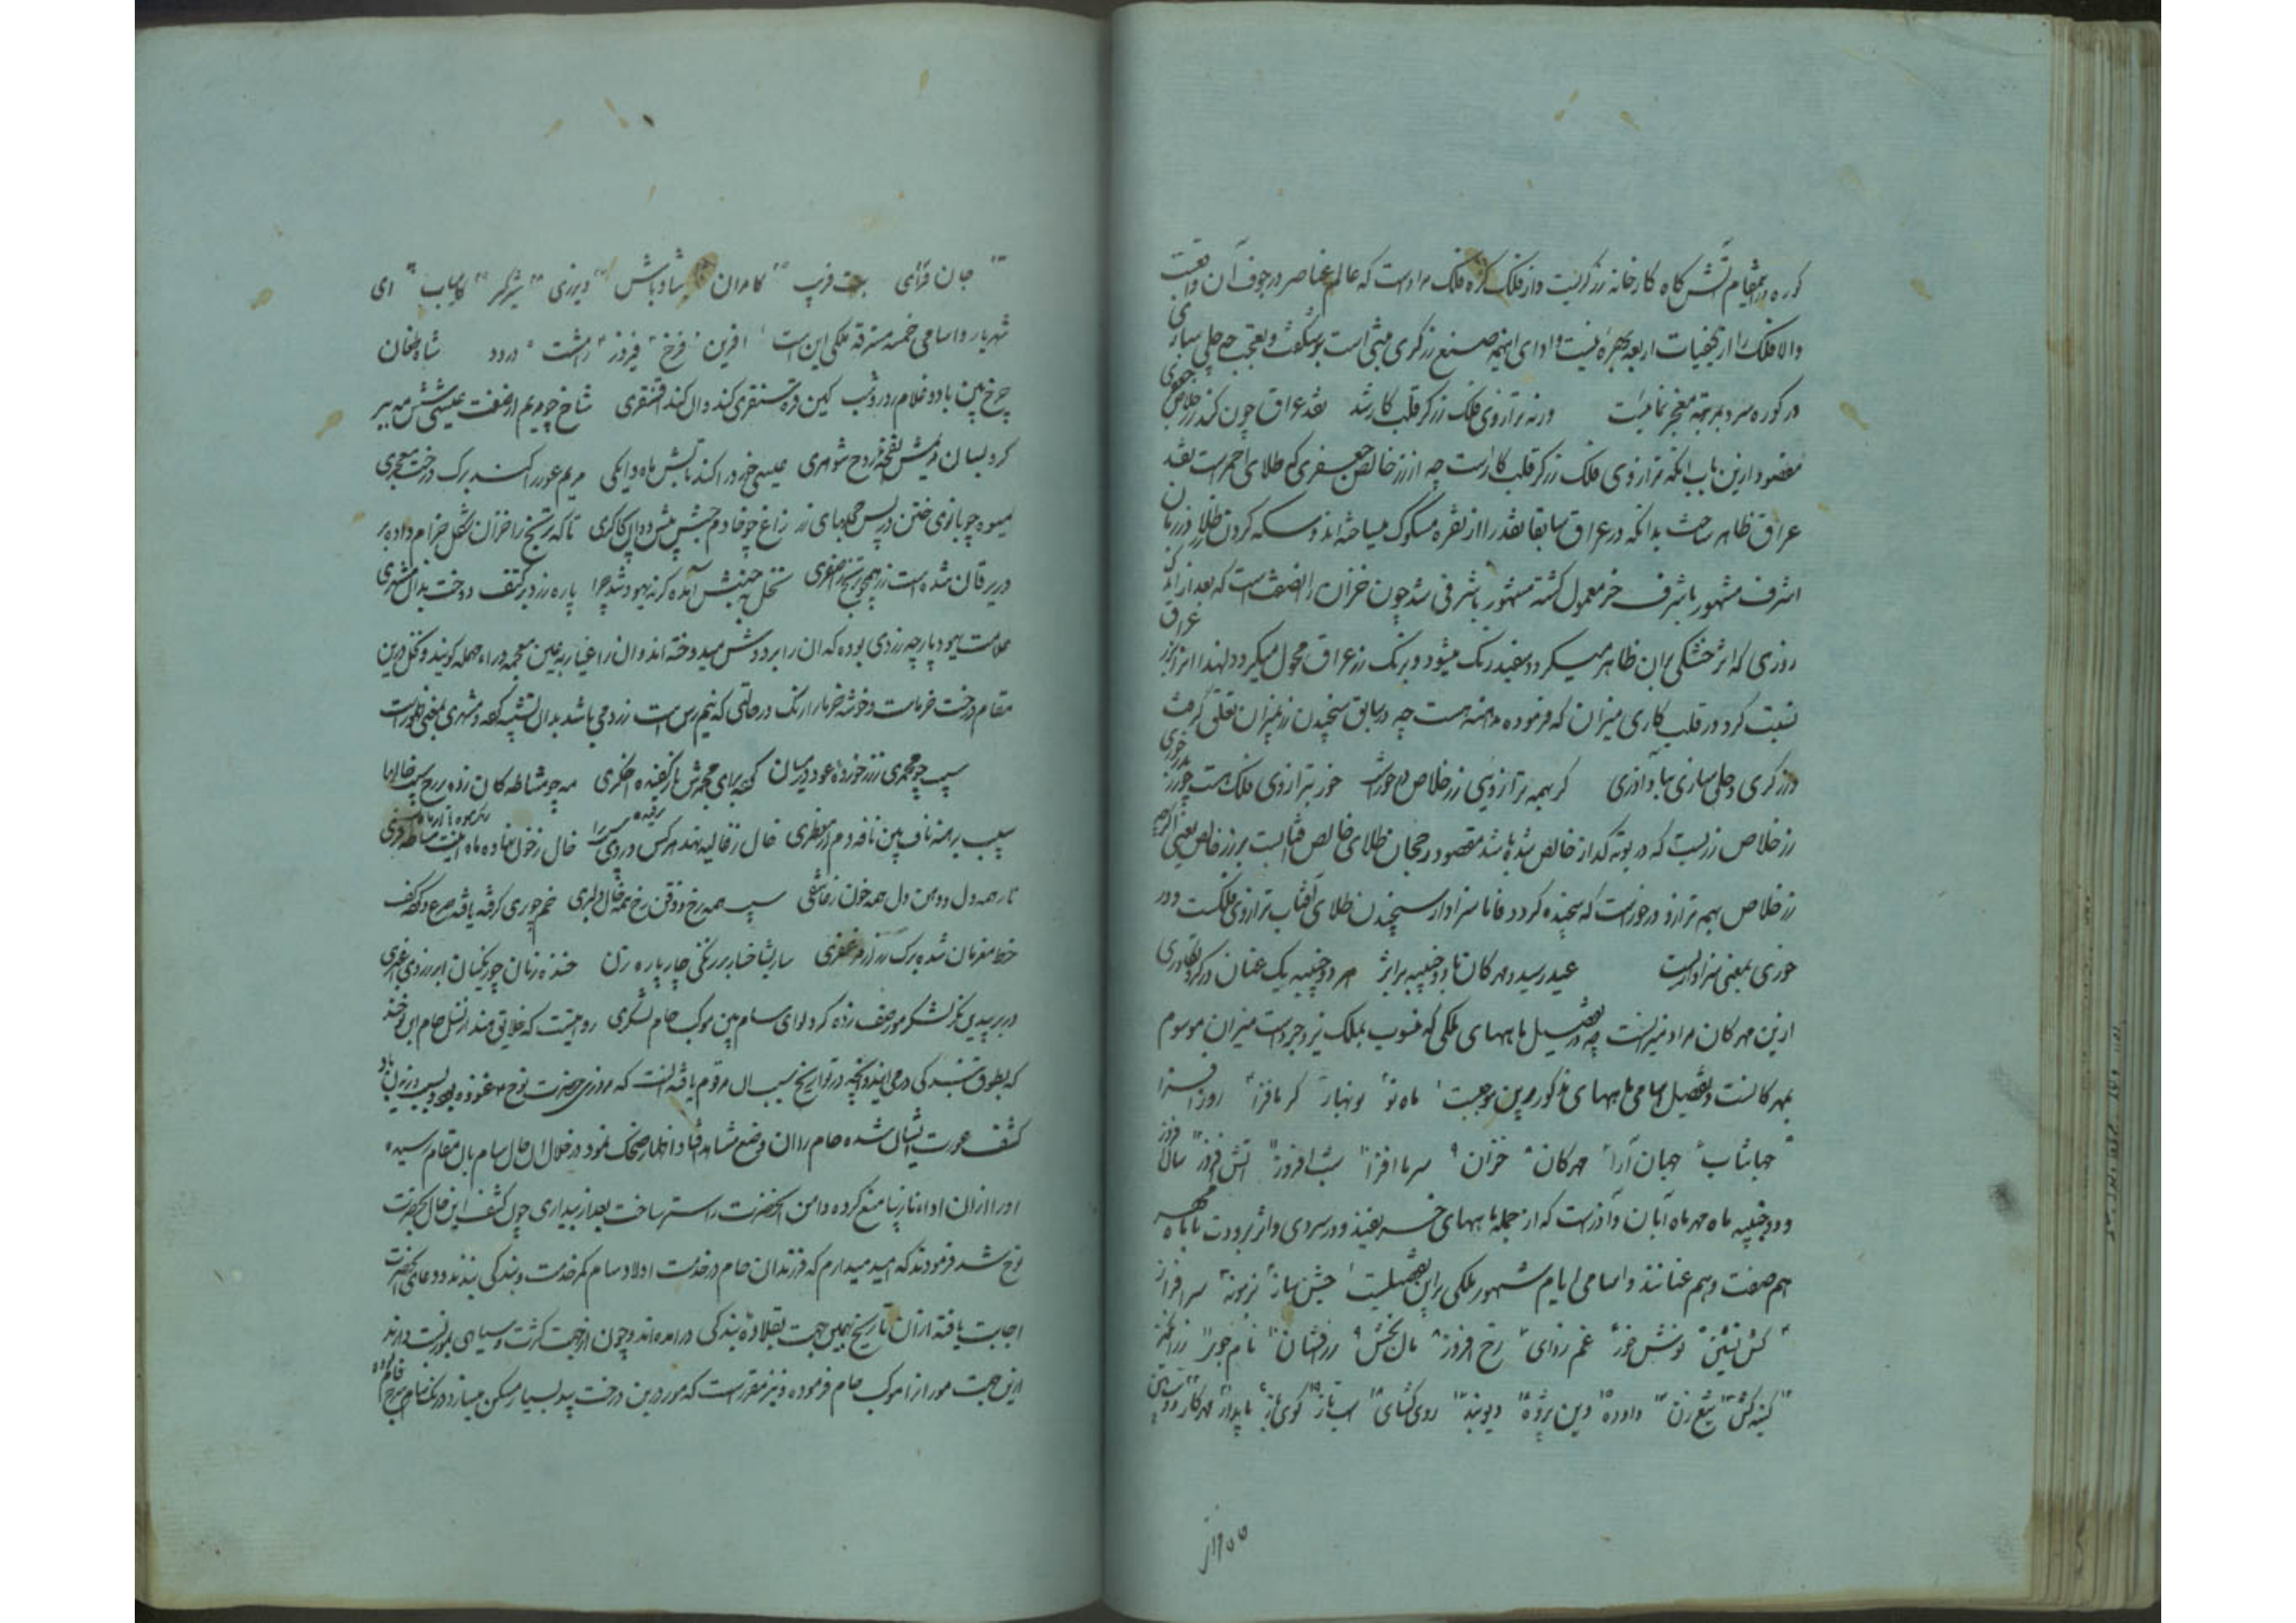 کوره درینمقام آتش کاه کارخانه زرکریست و از فلک کره فلک مراد است که عالم عناصر در جوف آن واقعست
والا فلک را از کیفیات اربعه بهره نیست و ادای اینهمه صنع زرکری مبنی است بر شکفت و تعجب چه حلی سازی
در کوره سرد مرتبه معجز نمائیست ورنه ترازوی فلک زرکر قلب کار شد نقد عراق چون کند زر خلاص جعفری
مقصود ازین باب آنکه ترازوی فلک زرکر قلب کار است چه از زر خالص جعفری که طلای احمر است نقد
عراق ظاهر ساخت بدانکه در عراق سابقا نقد را از نقره مسکوک میساخته اند و سکه کردن طلا در زمان
اشرف مشهور باشرف خر معمول کشته مشهور باشرفی شد چون خزان را صفتست که بعد از اند
روزی که اثر خشکی بر آن ظاهر میکردد سفید رنک میشود و برنک زر عراق محول میکردد لهذا این را بزر عراق
نسبت کرد و در قلب کاری میزان که فرموده هست چه در سابق سنجیدن زر بمیزان تعلق کرفت
در زرکری و حلی سازی بباد آذری کر بهمه ترازوئی زر خلاص در خورد خور بترازوی فلک هست چو زر درخوری
زر خلاص زریست که در بوته کداز خالص شده باشد مقصود رجحان طلای خالص آفتابست بر زر خالص یعنی اکرچه
زر خلاص بهم ترازو در خور است که سنجیده کردد فاما سزاوار سنجیدن طلای آفتاب ترازوی فلکست و در
خوری بمعنی سزاواریست عید رسید و مهرکان با دو جنیبه بر اثر هر دو جنیبه یک عنان در کرو تکاوری
ازین مهرکان مراد میزانست چه در تفصیل ماههای ملکی که منسوب بملک یزدجرد است میزان موسوم
بمهرکانست و تفصیل اسامی ماههای مذکور برین موجبست ماه نو نوبهار کرمافزا روزافزا
جهانتاب جهان آرا مهرکان خزان سرما افزا شب افروز آتش فروز سال افزوز
و دو جنیبه ماه مهر ماه آبان و آذرست که از جمله ماههای خریفند و در سردی و اثر برودت با ماه مهر
هم صفت و هم عنانند و اسامی ایام شهور ملکی براین تفصیلست جشن ساز بزم نه سرافراز
کش نشین نوش خور غم زدای رخ افروز مال بخش زر افشان نام جوی
کینه کش تیغ زن داوده دین پژوه دیوبند روی کشای اسب تاز کوی باز پایدار مهرکار
جان فزای بت فریب کامران شادباش دیرزی شیرکیر کامیاب ای
شهریار و اسامی خمسه مسترقه ملکی این است آفرین فرخ فیروز رامشت درود شاه طغان
چرخ بین با دو غلام روز و شب کین قره سنقری کند وان کند اقسنقری شاخ چو مریم از صفت عیسی شش مه بر
کرد بسان مریمش نفخه روح شوهری عیسی خرد را کند تابش ماه دایکی مریم عور را کند برک درخت معجری
میوه چو بانوی ختن در پس حجله های زر زاغ چو خادم حبش پیش دوان بچاکری تا که ترنج را خزان شکل جذام داد بر
در یرقان شده است نارنج همچو ترنج اصفری نخل بجنبش آمده کر نه یهود شد چرا پاره زرد بر کتف دوخت بدان مشهری
علامت یهود پارچه زردی بوده که آن را بر دوش میدوخته اند و آن را غیار به غین معجمه و راء مهمله کویند و نخل درین
مقام درخت خرماست و خوشه خرما را رنک در حالتی که نیم رس است زرد می باشد بدان تشبیه کرده و مشهری بمعنی ظهور است
سیب چو مجمری ز زر خورده عود در میان کرده برای مجمرش نار کفیده اخکری مه چو مشاطه کان زده بر رخ سیب خالها
سیب برهنه ناف بین نافه دم از معطری خال ز غالیه نهد هر کس و در روی سرا خال ز خون نهاده ماه اینت مشاطه فری
نار همه دل و دهن دل همه خون ز عاشقی سیب همه رخ و ذقن رخ همه خال دلبری خم چو پری کرفته یافته صرع و کرده کف
خط معزمان شده برک رز از مزعفری سار بشاخسار بر زنکی چار پاره زن خنده زنان چو زنکیان ابر ز روی اغبری
در بر بید بن نکر لشکر مور صف زده کرد لوای سام بین موکب حام لشکری روایتست که خلائق هند از نسل حام ابن نوحند
که بطوق بندکی در می آیند و آنچه در تواریخ سبب آن مرقوم یافته آنست که روزی حضرت نوح غنوده بود و بسبب وزیدن باد
کشف عورت ایشان شده حام را آن وضع مشاهد افتاد و اظهار ضحک نمود در خلال آن حال سام بآن مقام رسیده
او را از آن اداء نازیبا منع کرده و دامن آنحضرت را ستر ساخت بعد از بیداری چون کشف این حال بحضرت
نوح شد فرمودند که امید میدارم که فرزندان حام در خدمت اولاد سام کمر خدمت و بندکی بندند و دعای آنحضرت
اجابت یافته از آن تاریخ بهمین جهت بقلاده بندکی درآمده اند و چون از جهت کثرت و سیاهی بمور نسبت دارند
ازین جهت مور را موکب حام فرموده و نیز مقرر است که مور در بن درخت بید بسیار مسکن میسازد